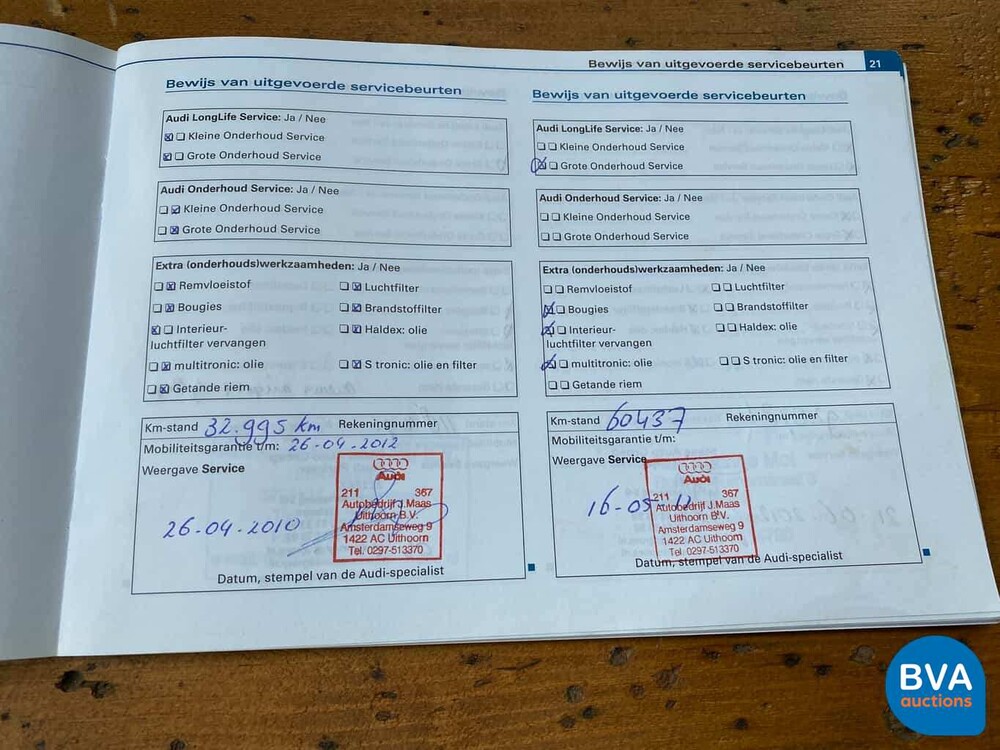 Bewijs van uitgevoerde servicebeurten 21
Bewijs van uitgevoerde servicebeurten
Audi LongLife Service: Ja / Nee
Kleine Onderhoud Service
Grote Onderhoud Service
Audi Onderhoud Service: Ja / Nee
Kleine Onderhoud Service
Grote Onderhoud Service
Extra (onderhouds)werkzaamheden: Ja / Nee
Remvloeistof Luchtfilter
Bougies Brandstoffilter
Interieur- Haldex: olie
luchtfilter vervangen
multitronic: olie S tronic: olie en filter
Getande riem
Km-stand 32.995 km Rekeningnummer
Mobiliteitsgarantie t/m: 26-04-2012
Weergave Service
26-04-2010
Audi
211 367
Autobedrijf J.Maas
Uithoorn B.V.
Amsterdamseweg 9
1422 AC Uithoorn
Tel. 0297-513370
Datum, stempel van de Audi-specialist
Bewijs van uitgevoerde servicebeurten
Audi LongLife Service: Ja / Nee
Kleine Onderhoud Service
Grote Onderhoud Service
Audi Onderhoud Service: Ja / Nee
Kleine Onderhoud Service
Grote Onderhoud Service
Extra (onderhouds)werkzaamheden: Ja / Nee
Remvloeistof Luchtfilter
Bougies Brandstoffilter
Interieur- Haldex: olie
luchtfilter vervangen
multitronic: olie S tronic: olie en filter
Getande riem
Km-stand 60437 Rekeningnummer
Mobiliteitsgarantie t/m:
Weergave Service
16-05-11
Audi
211 367
Autobedrijf J.Maas
Uithoorn B.V.
Amsterdamseweg 9
1422 AC Uithoorn
Tel. 0297-513370
Datum, stempel van de Audi-specialist
BVA
auctions